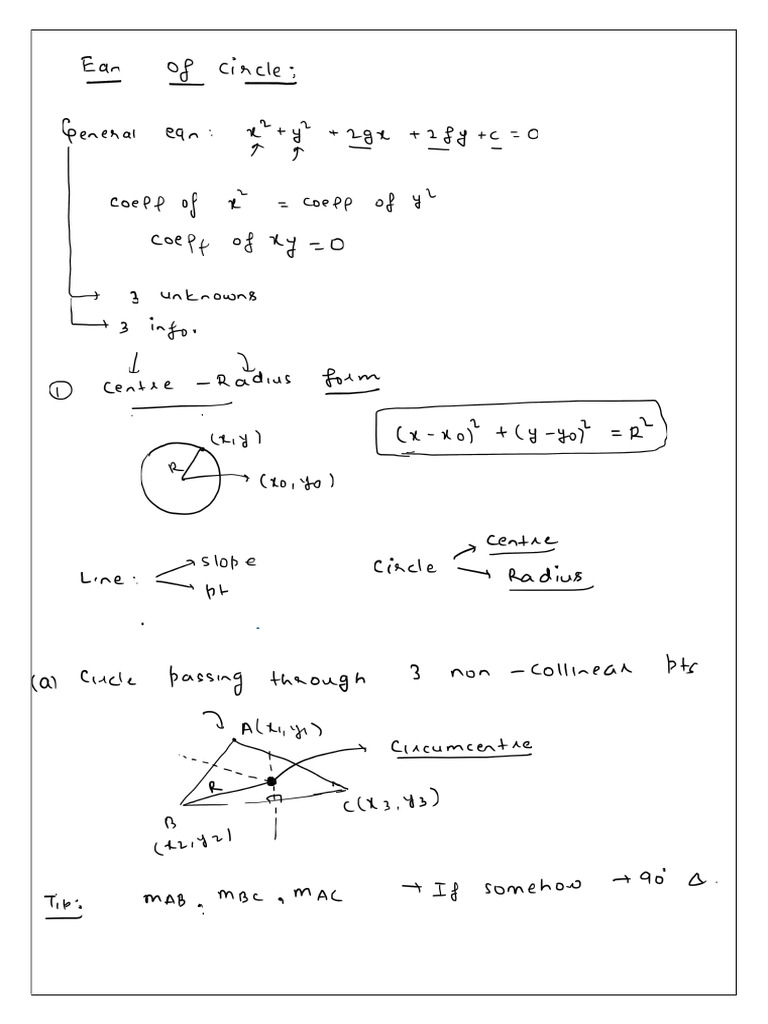 Eqn of circle:
General eqn: x² + y² + 2gx + 2fy + c = 0
coeff of x² = coeff of y²
coeff of xy = 0
3 unknowns
3 info.
① Centre - Radius form
(x - x0)² + (y - y0)² = R²
(x, y)
R
(x0, y0)
Line: slope
pt
Circle Centre
Radius
(a) Circle passing through 3 non-collinear pts
A(x1, y1)
Circumcentre
R
C(x3, y3)
B
(x2, y2)
Tip: mAB, mBC, mAC → If somehow → 90° Δ.